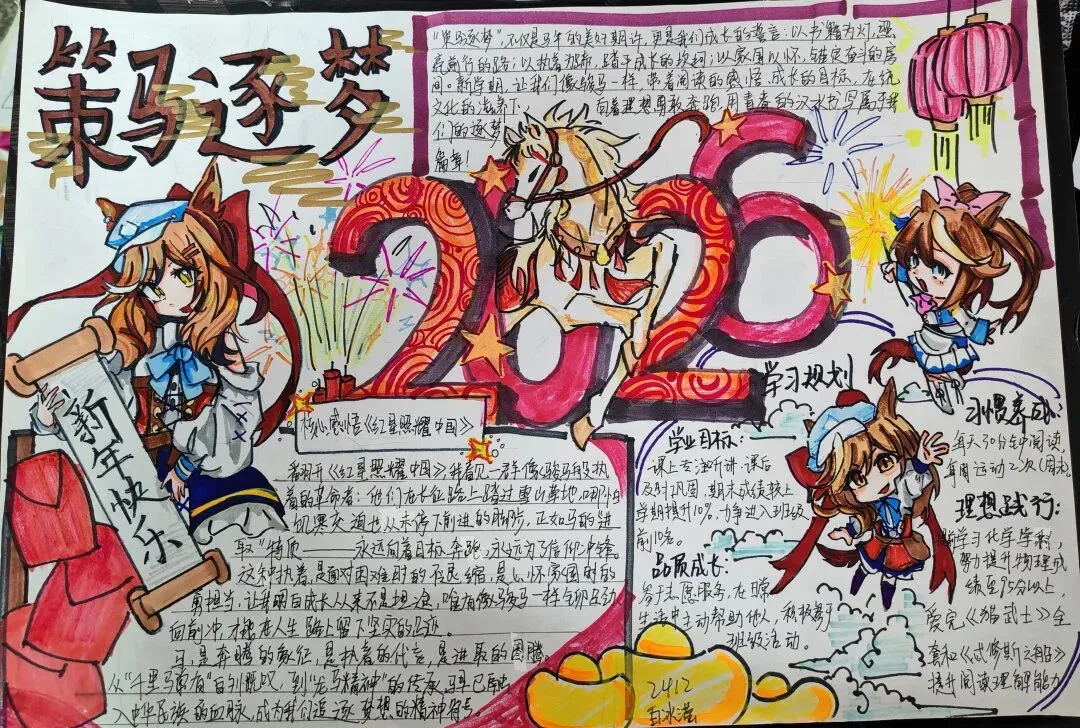 策马逐梦
"策马逐梦",不仅是马年的美好期许,更是我们成长的誓言:以书籍为灯,照
亮前行的路;以执着为帝,踏平成长的坎坷;以家国为怀,锚定奋斗的方
向。新学期,让我们像骏马一样,带着阅读的感悟、成长的目标,在优
文化的滋养下,向着理想勇敢奔跑,用青春的汗水书写属于我
们的逐梦
篇章!
2026
新年快乐
核心感悟《红星照耀中国》
翻开《红星照耀中国》,我看见一群像骏马般执
着的革命者:他们在长征路上踏过雪山草地,哪怕
饥寒交迫也从未停下前进的脚步,正如马的"进
取"特质——永远向着目标奔跑,永远为了信仰冲锋。
这种执着,是面对困难时的不畏缩,是心怀家国时的
勇担当,让我明白成长从来不是坦途,唯有像骏马一样
向前冲,才能在人生路上留下坚实的足迹。
马,是奔腾的象征,是执着的代言,是进取的图腾,
从"千里马常有"的慨叹,到"龙马精神"的传承,马早已
入中华民族的血脉,成为我们追逐梦想的精神符号。
学习规划
学业目标:
课上专注听讲,课后
及时巩固,期末成绩较上
学期提升10%,力争进入班级
前10名。
品质成长:
参与志愿服务,在日常
生活中主动帮助他人,积极参与
班级活动。
习惯养成:
每天30分钟阅读,
每周运动2次(周末)
理想践行:
新学习化学学科,
努力提升物理成
绩至95分以上,
爱完《猫武士》全
套和《戒修斯之船》
提升阅读理解能力
2412
白冰滢